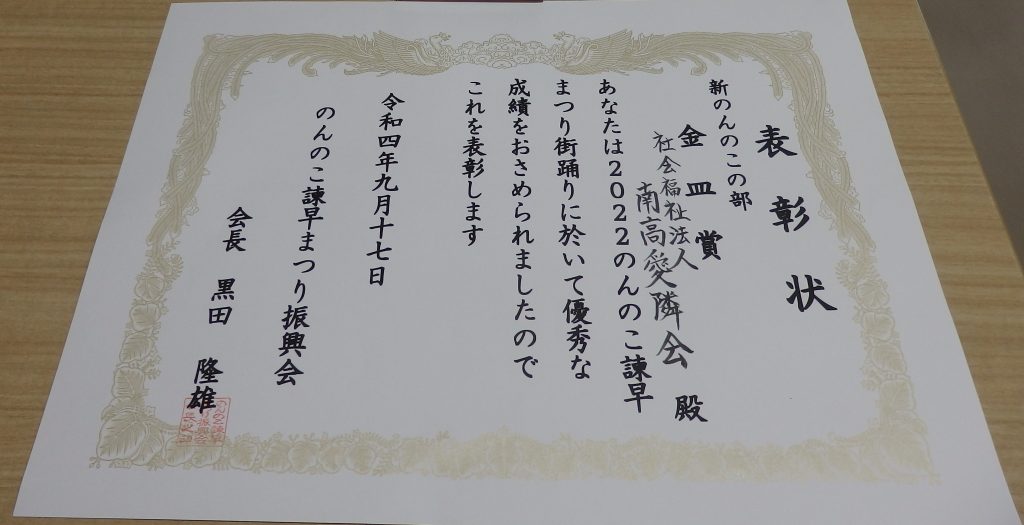 表彰状
新のんのこの部
金皿賞
社会福祉法人
南高愛隣会 殿
あなたは2022のんのこ諫早
まつり街踊りに於いて優秀な
成績をおさめられましたので
これを表彰します
令和四年九月十七日
のんのこ諫早まつり振興会
会長 黒田 隆雄